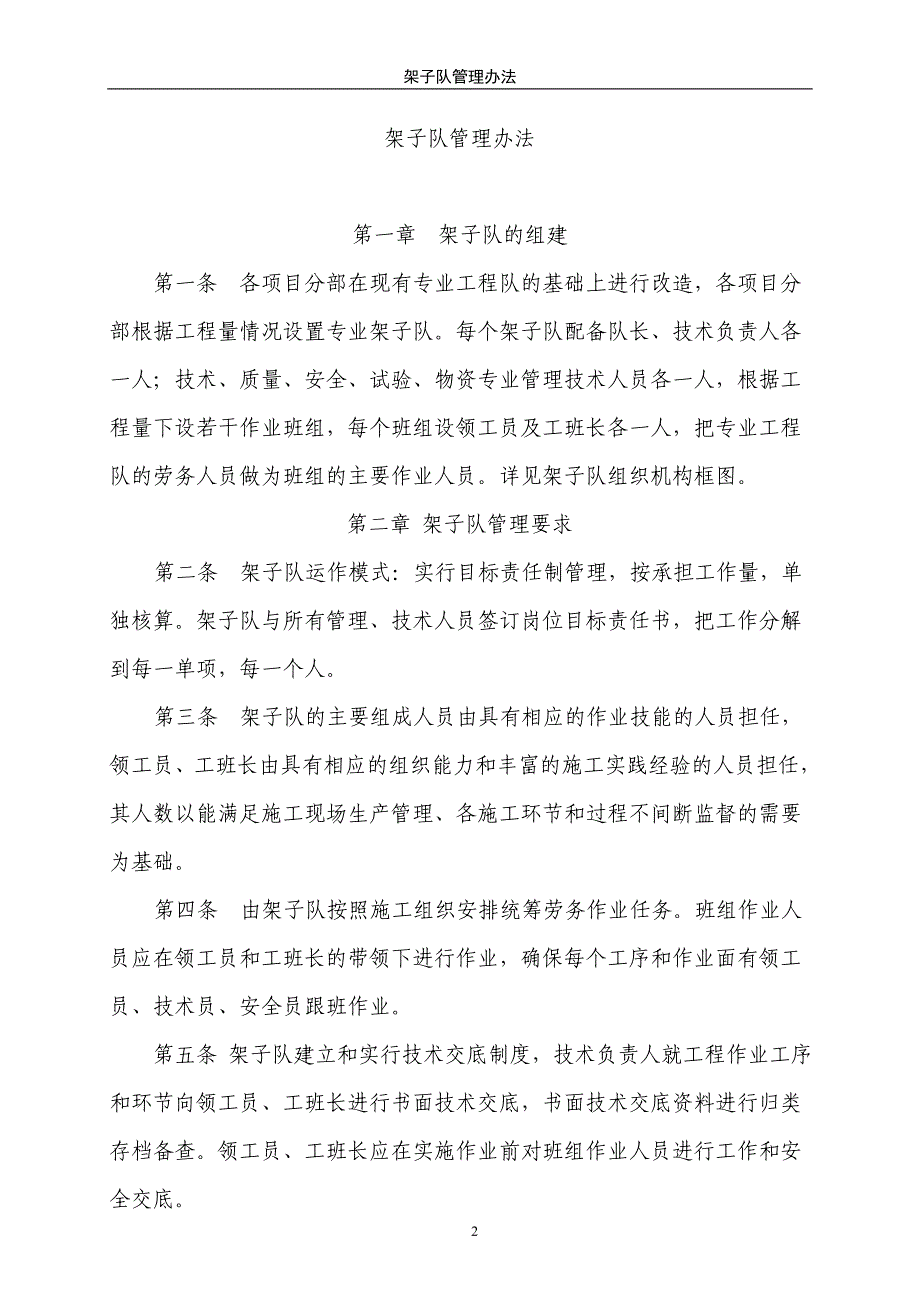 架子队管理办法
架子队管理办法
第一章　架子队的组建
第一条　各项目分部在现有专业工程队的基础上进行改造，各项目分
部根据工程量情况设置专业架子队。每个架子队配备队长、技术负责人各
一人；技术、质量、安全、试验、物资专业管理技术人员各一人，根据工
程量下设若干作业班组，每个班组设领工员及工班长各一人，把专业工程
队的劳务人员做为班组的主要作业人员。详见架子队组织机构框图。
第二章 架子队管理要求
第二条　架子队运作模式：实行目标责任制管理，按承担工作量，单
独核算。架子队与所有管理、技术人员签订岗位目标责任书，把工作分解
到每一单项，每一个人。
第三条　架子队的主要组成人员由具有相应的作业技能的人员担任，
领工员、工班长由具有相应的组织能力和丰富的施工实践经验的人员担任，
其人数以能满足施工现场生产管理、各施工环节和过程不间断监督的需要
为基础。
第四条　由架子队按照施工组织安排统筹劳务作业任务。班组作业人
员应在领工员和工班长的带领下进行作业，确保每个工序和作业面有领工
员、技术员、安全员跟班作业。
第五条 架子队建立和实行技术交底制度，技术负责人就工程作业工序
和环节向领工员、工班长进行书面技术交底，书面技术交底资料进行归类
存档备查。领工员、工班长应在实施作业前对班组作业人员进行工作和安
全交底。
2